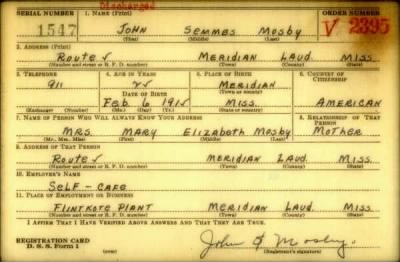 Discharged
SERIAL NUMBER 1. NAME (Print) ORDER NUMBER
1547 JOHN SEMMES MOSBY V 2395
(First) (Middle) (Last)
2. ADDRESS (Print)
ROUTE √ MERIDIAN LAUD. MISS.
(Number and street or R. F. D. number) (Town) (County) (State)
3. TELEPHONE 4. AGE IN YEARS 5. PLACE OF BIRTH 6. COUNTRY OF CITIZENSHIP
911 25 MERIDIAN
DATE OF BIRTH (Town or county)
Feb. 6 1915 MISS. AMERICAN
(Exchange) (Number) (Mo.) (Day) (Yr.) (State or country)
7. NAME OF PERSON WHO WILL ALWAYS KNOW YOUR ADDRESS 8. RELATIONSHIP OF THAT PERSON
MRS. MARY ElizabETH MosBy MOTHER
(Mr., Mrs., Miss) (First) (Middle) (Last)
9. ADDRESS OF THAT PERSON
ROUTE √ MERIDIAN LAUD. MISS.
(Number and street or R. F. D. number) (Town) (County) (State)
10. EMPLOYER'S NAME
SELF - CAFE
11. PLACE OF EMPLOYMENT OR BUSINESS
FLINTKOTE PLANT MERIDIAN LAUD. MISS.
(Number and street or R. F. D. number) (Town) (County) (State)
I AFFIRM THAT I HAVE VERIFIED ABOVE ANSWERS AND THAT THEY ARE TRUE.
REGISTRATION CARD
D. S. S. Form 1 John S Mosby.